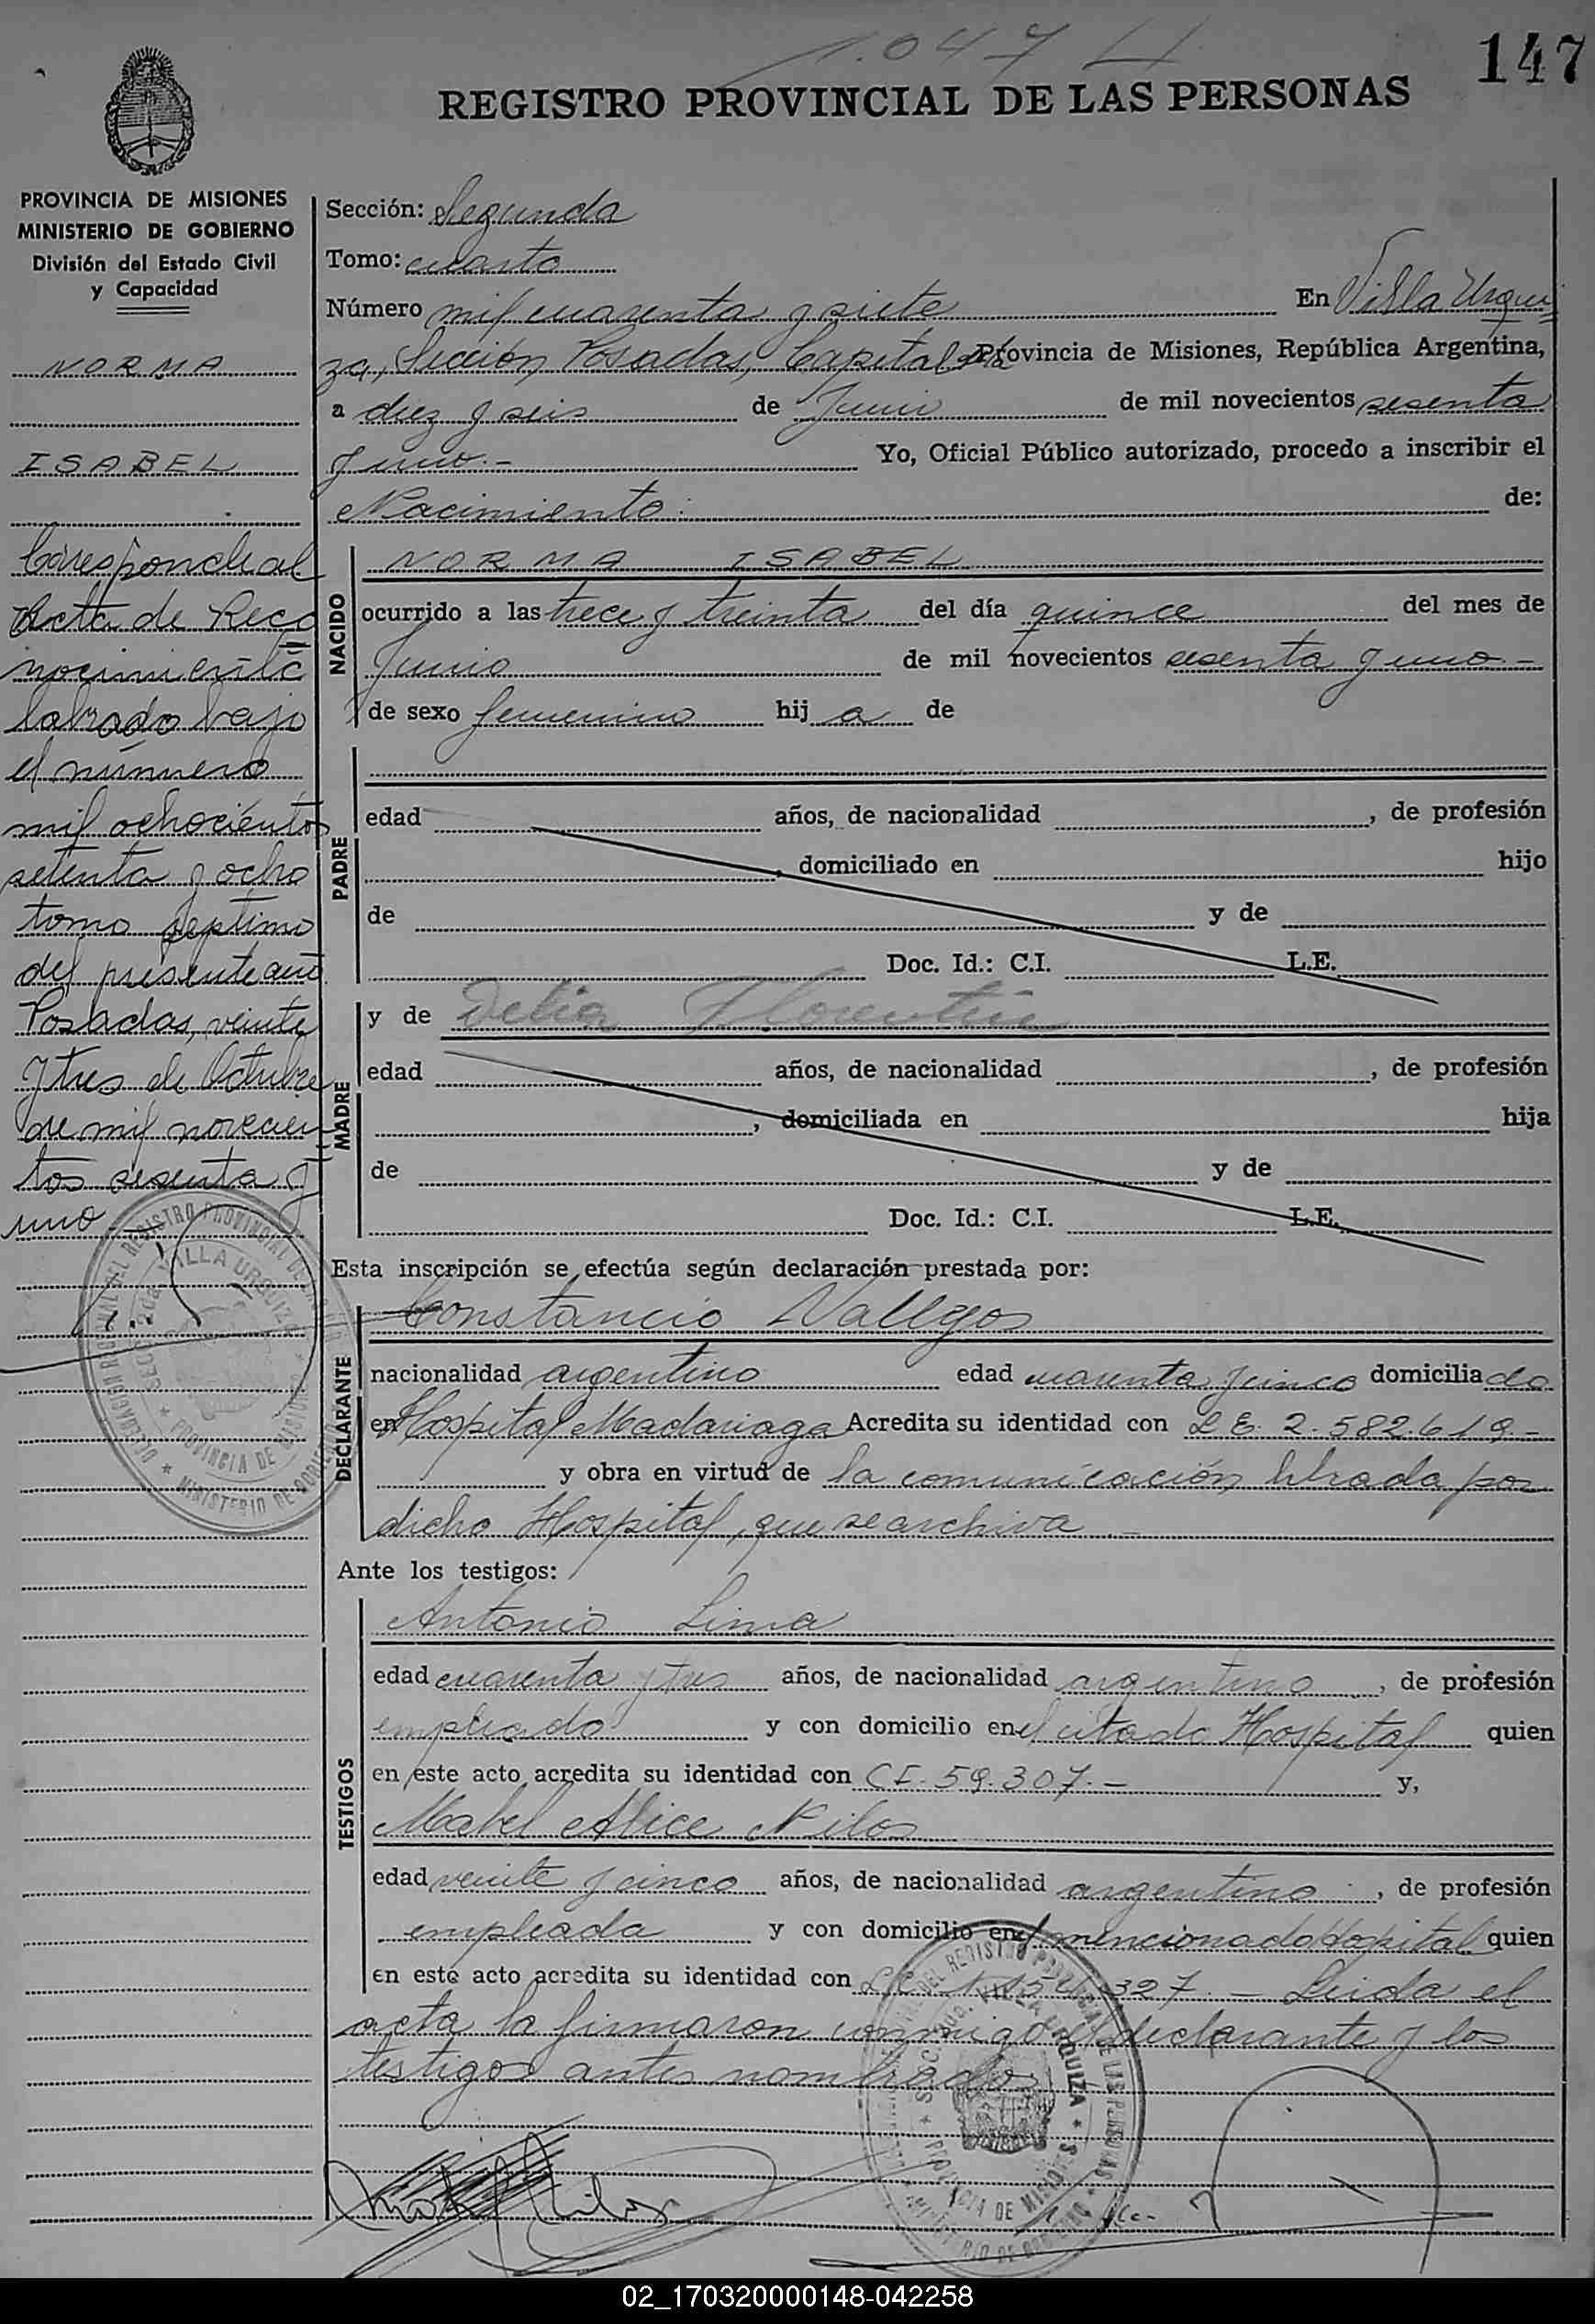 1.047
147
REGISTRO PROVINCIAL DE LAS PERSONAS
PROVINCIA DE MISIONES
MINISTERIO DE GOBIERNO
División del Estado Civil
y Capacidad
NORMA
ISABEL
Corresponde al
Acta de Reco
nocimiento
labrado bajo
el número
mil ochocientos
setenta y ocho
tomo septimo
del presente año
Posadas, veinte
y tres de Octubre
de mil novecien
tos sesenta y
uno
Sección: Segunda
Tomo: cuarto
Número mil cuarenta y siete En Villa Urqui
za, Sección Posadas, Capital de la Provincia de Misiones, República Argentina,
a diez y seis de Junio de mil novecientos sesenta
y uno.- Yo, Oficial Público autorizado, procedo a inscribir el
Nacimiento: de:
NACIDO
NORMA ISABEL
ocurrido a las trece y treinta del día quince del mes de
Junio de mil novecientos sesenta y uno.-
de sexo femenino hij a de
PADRE
edad años, de nacionalidad , de profesión
, domiciliado en hijo
de y de
Doc. Id.: C.I. L.E.
MADRE
y de Delia Florentín
edad años, de nacionalidad , de profesión
, domiciliada en hija
de y de
Doc. Id.: C.I. L.E.
Esta inscripción se efectúa según declaración prestada por:
DECLARANTE
Constancio Vallejos
nacionalidad argentino edad cuarenta y cinco domicilia do
en Hospital Madariaga Acredita su identidad con L.E. 2.582.619.-
y obra en virtud de la comunicación librada por
dicho Hospital, que se archiva.-
Ante los testigos:
TESTIGOS
Antonio Lima
edad cuarenta y tres años, de nacionalidad argentino, de profesión
empleado y con domicilio en el citado Hospital quien
en este acto acredita su identidad con C.I. 59.307.- y,
Mabel Alice Nilos
edad veinte y cinco años, de nacionalidad argentino, de profesión
empleada y con domicilio en el mencionado Hospital quien
en este acto acredita su identidad con 327.- Leida el
acta la firmaron conmigo el declarante y los
testigos antes nombrados
VILLA URQUIZA
PROVINCIA DE MISIONES
02_170320000148-042258